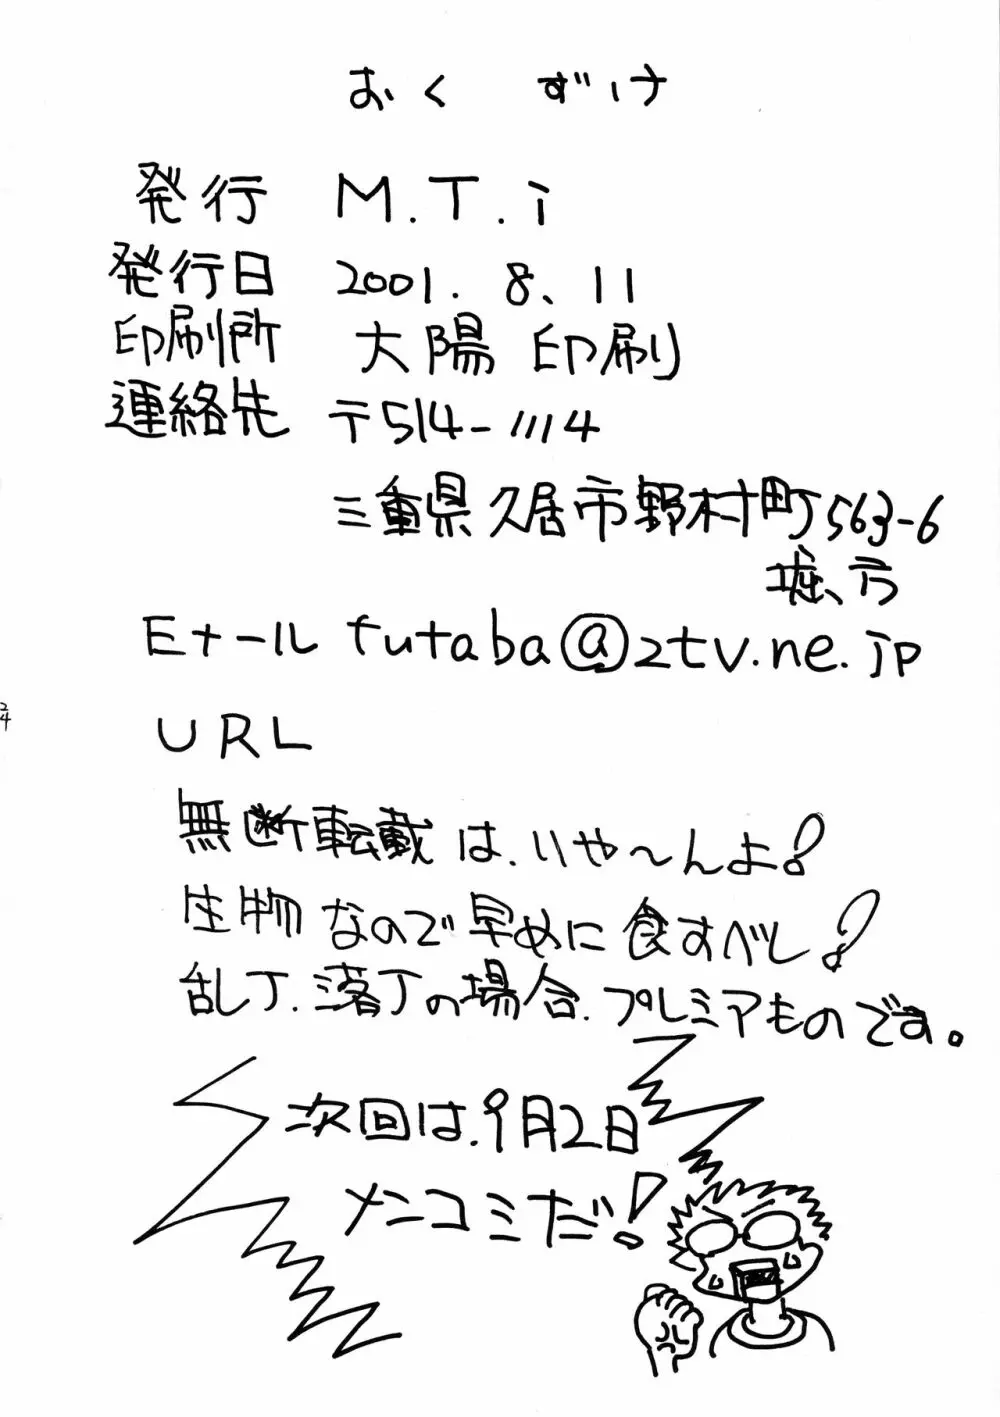 おくずけ
発行 M.T.i
発行日 2001.8.11
印刷所 大陽印刷
連絡先 〒514-1114
三重県久居市野村町563-6
堀方
Eメール futaba@ztv.ne.jp
24
URL
無断転載は、いや〜んよ!
生物なので早めに食すべし!
乱丁、落丁の場合、プレミアものです。
次回は、9月2日
メンコミだ!